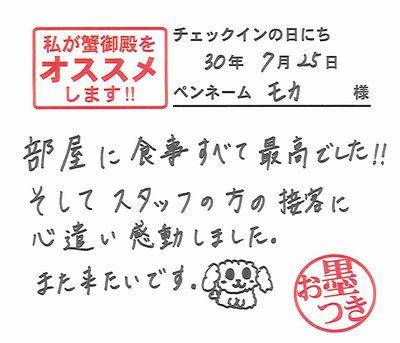 私が蟹御殿を
オススメ
します!!
チェックインの日にち
30年 7月25日
ペンネーム モカ 様
部屋に食事すべて最高でした!!
そしてスタッフの方の接客に
心遣い感動しました。
また来たいです。
お墨つき